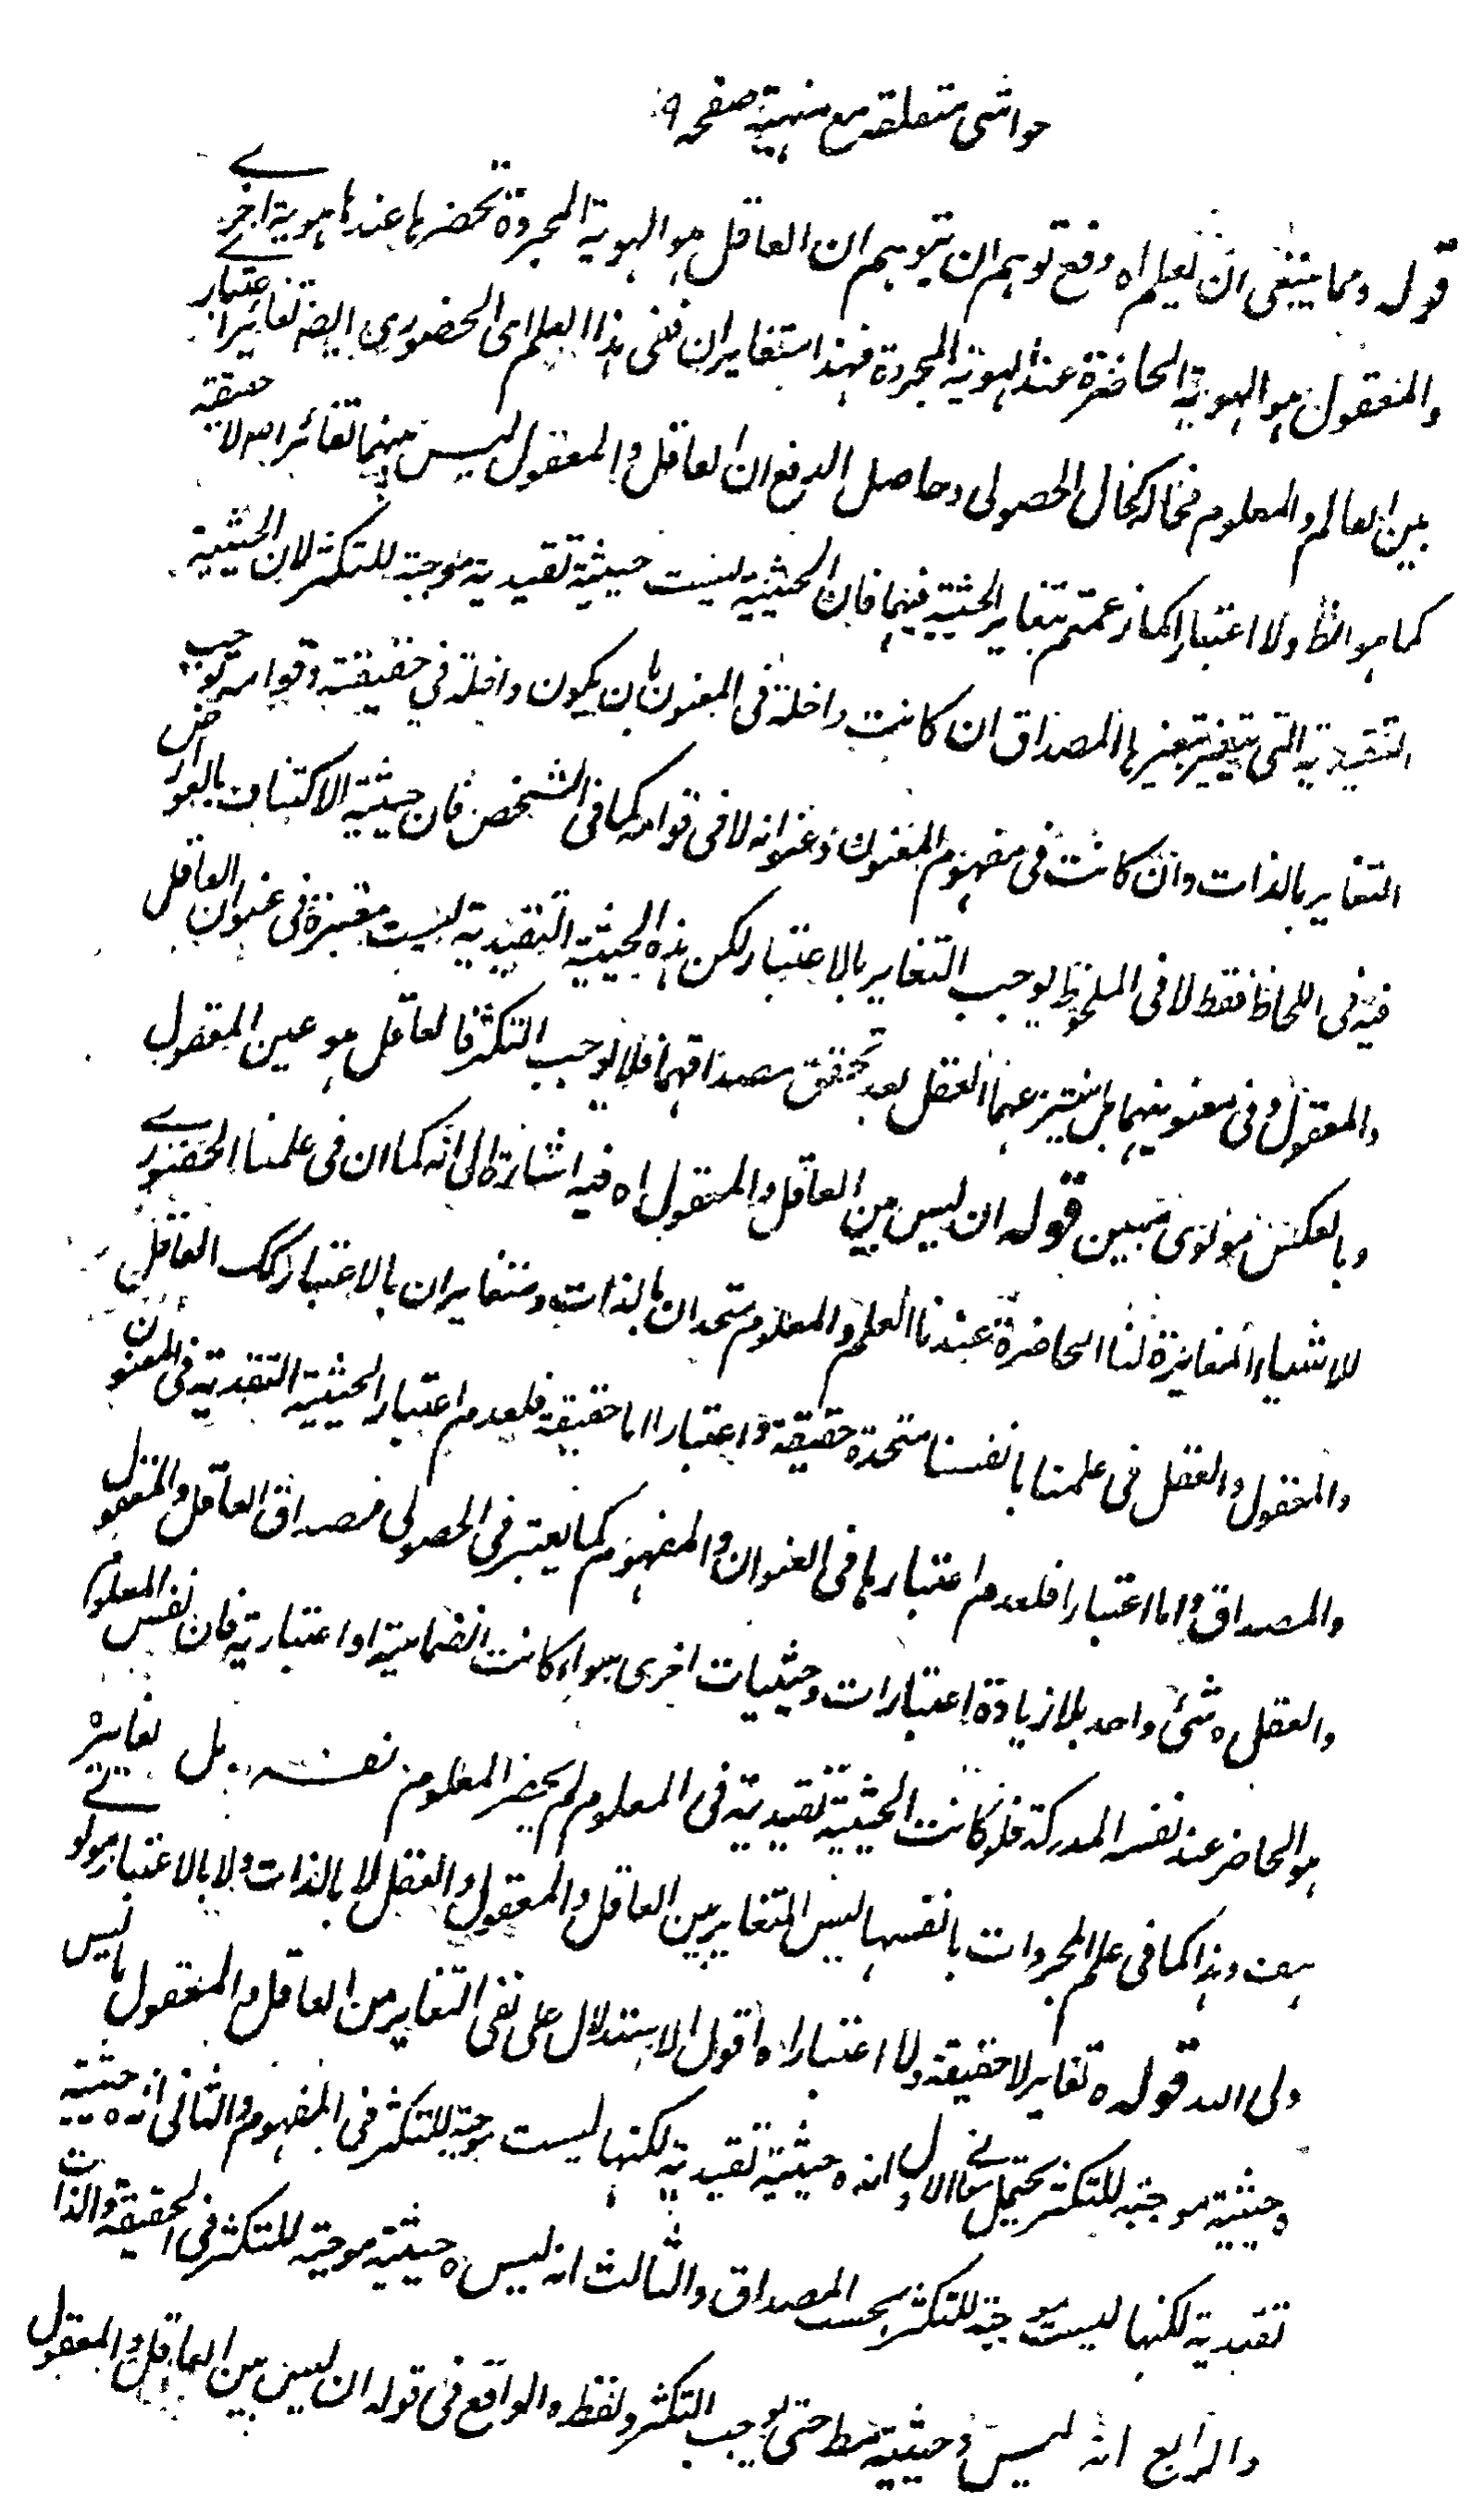 حواشی متعلقه مع منهیة صفحه ٩
قوله ومما ینبغی ان یعلم اه دفع توهم ان یتوهم ان العاقل هو الهویة المجردة تحضرها عندها هویة اخرے
والمعقول هو الهویة الحاضرة عند الهویة المجردة فهذا متغایران ففی هذا العلم ای الحضوری ایضا تغایرا اعتبار
بین العالم والمعلوم فحاله کحال الحصولی وحاصل الدفع ان العاقل والمعقول لیس بینهما تغائر اصلا لا حقیقة
کما هو الظ ولا اعتبارا کما زعمتم بتغایر الحیثیة فیهما فان الحیثیة لیست حیثیة تقییدیة موجبة للتکثر لان الحیثیة
التقییدیة التی یتغیر بتغیرها المصداق ان کانت داخلة فی المعنون بان یکون داخلة فی حقیقته وقوامه توجب
التغایر بالذات وان کانت فی مفهوم المعنون وعنوانه لا فی قوامه کما فی الشخص فان حیثیة الاکتناف بالعوارض
فیه فی اللحاظ فقط لا فی الملحوظ یوجب التغایر بالاعتبار لکن هذه الحیثیة التقییدیة لیست معتبرة فی عنوان العاقل
والمعقول وفی معنونیهما بل ینتزعهما العقل بعد تحقق مصداقهما فلا یوجب التکثر فالعاقل هو عین المعقول
وبالعکس مولوی مبین قوله ان لیس بین العاقل والمعقول اه فیه اشارة الی انه کما ان فی علمنا الحضورے
للاشیاء المغایرة لنا الحاضرة عندنا العلم والمعلوم متحدان بالذات ومتغایران بالاعتبار کک العاقل
والمعقول والعقل فی علمنا بانفسنا متحدة حقیقة واعتبارا اما حقیقة فلعدم اعتبار الحیثیة التقییدیة فی المعنون
والمصداق واما اعتبارا فلعدم اعتبارها فی العنوان والمفهوم کما یعتبر فی الحصولی فمصداق العاقل والمعقول
والعقل ه شئ واحد بلا زیادة اعتبارات وحیثیات اخری سواء کانت انضمامیة او اعتباریة فان نفس المعلوم
هو الحاضر عند نفسه المدرکة فلو کانت الحیثیة تقییدیة فی المعلوم لم یحضر المعلوم نفسه بل تغایره
هف وهذا کما فی علم المجردات بانفسها لیس التغایر بین العاقل والمعقول والعقل لا بالذات ولا بالاعتبار مولوے
ولی الله قوله ه تغایر لا حقیقة ولا اعتبارا ه اقول الاستدلال علی نفی التغایر من العاقل والمعقول بانه لیس
ه حیثیة موجبة للتکثر یحتمل معان الاول انه ه حیثیة تقییدیة لکنها لیست موجبة للتکثر فی المفهوم والثانی انه ه حیثیة
تقییدیة لکنها لیست موجبة للتکثر بحسب المصداق والثالث انه لیس ه حیثیة موجبة للتکثر فی الحقیقة والذات
والرابع انه لیس ه حیثیة قط حتی یوجب التکثر ولفظ ه الواقع فی قوله ان لیس بین العاقل والمعقول